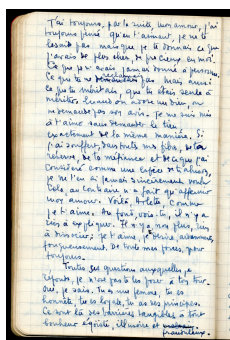 J'ai toujours, par la suite, mon amour, j'ai
toujours pensé qu'en t'aimant, je ne te
lésait pas mais que je te donnais ce que
j'avais de plus cher, de précieux en moi.
Ce que je n'avais jamais donné à personne.
Ce que tu ne réclamais pas mais aussi
ce que tu méritais, que tu étais seule à
mériter. Quand on adore un bien, on
ne demande pas son avis. Je me suis mis
à t'aimer sans demander le tien,
exactement de la même manière. Si
j'ai souffert, dans toutes mes fibres, de ta
réserve, de ta méfiance et de ce que j'ai
considéré comme une espèce de trahison,
je ne t'en ai jamais sincèrement voulu.
Cela, au contraire, n'a fait qu'affermir
mon amour. Voilà, Arlette, comme
je t'aime. Au fond, vois-tu, il n'y a
rien à expliquer. Il n'y a, non plus, rien
à dissocier; je t'aime, je désire,
fougueusement. De toutes mes forces, pour
toujours.
Toutes ces questions auxquelles je
réponds, je n'ose pas te les poser à toi. Car,
oui, je sais. Tu es une femme, tu es
honnête, tu es loyale, tu as des principes.
Ce sont là des barrières tangibles à tout
bonheur égoïste, illusoire et
frauduleux.